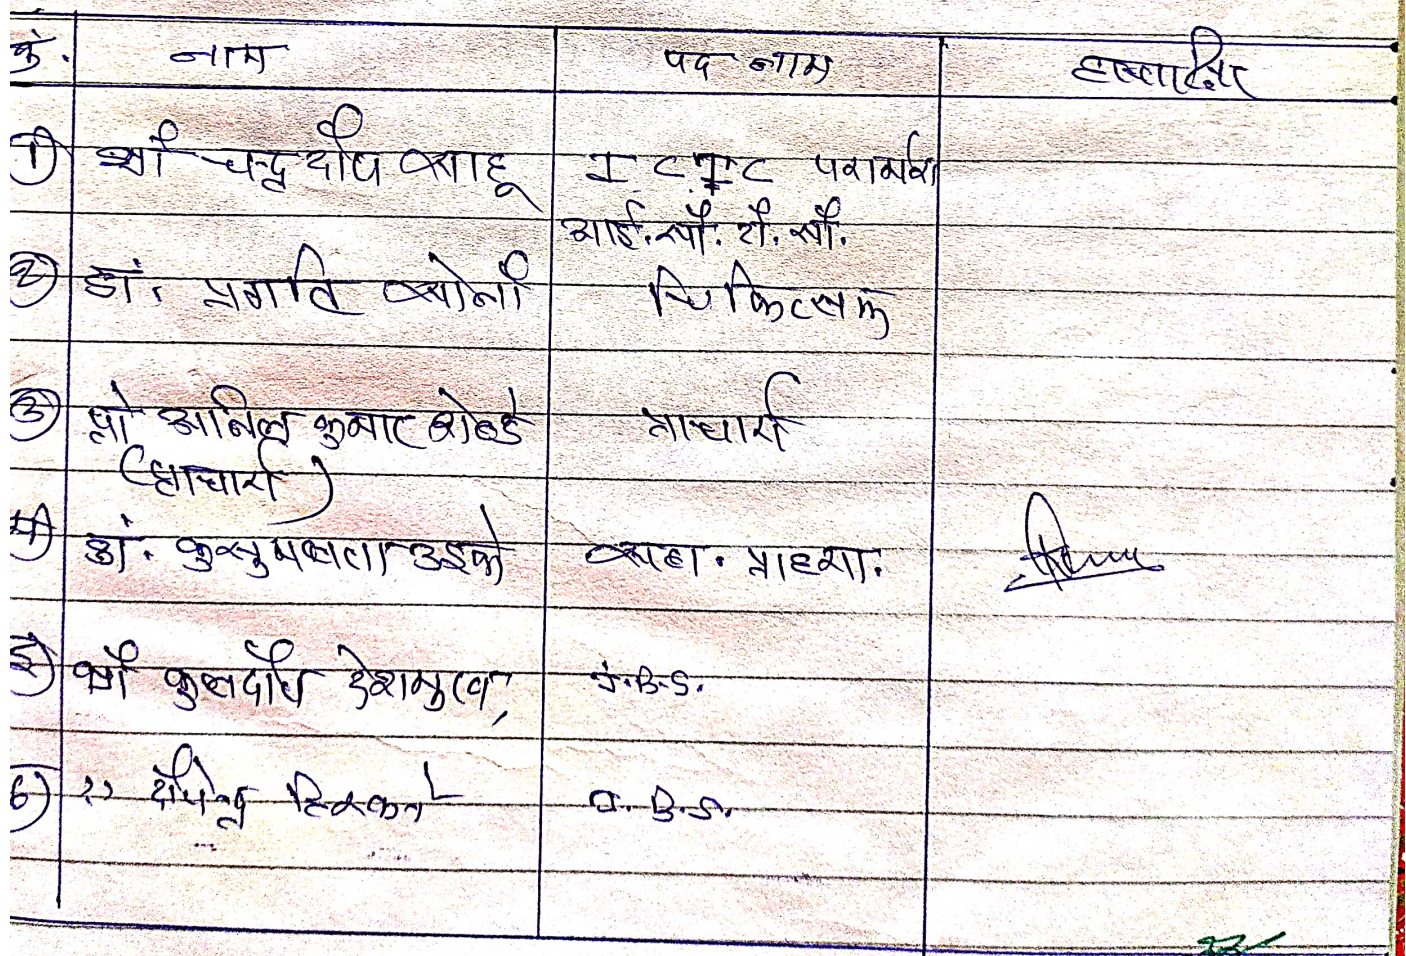 कं. नाम पद नाम हस्ताक्षर
① श्री चन्द्रदीप साहू ICTC परामर्श
आई.सी.टी.सी.
② डॉ. प्रगति सोनी चिकित्सक
③ प्रो अनिल कुमार शेन्डे प्राचार्य
(प्राचार्य)
4) डॉ. कुसुमलता उइके सहा. प्राध्या.
5) श्री कुलदीप देशमुख, J.B.S.
6) ,, दीपेन्द्र B.S.